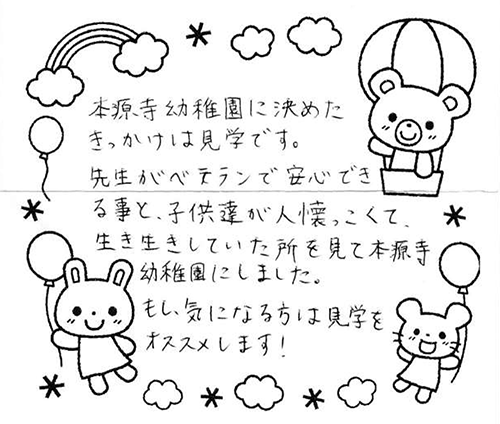 本源寺幼稚園に決めた
きっかけは見学です。
先生がベテランで安心でき
る事と、子供達が人懐っこくて、
生き生きしていた所を見て本源寺
幼稚園にしました。
もし、気になる方は見学を
オススメします!